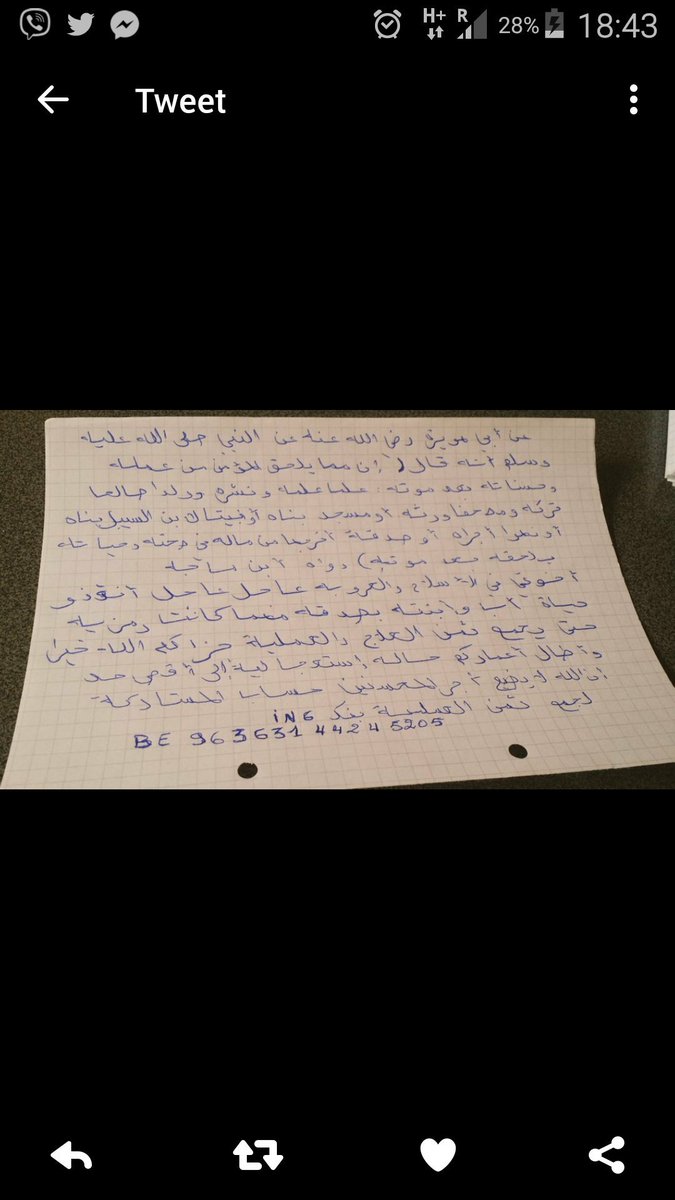 H+ R 28% 18:43
Tweet
عن أبي هريرة رضي الله عنه عن النبي صلى الله عليه
وسلم أنه قال ( إن مما يلحق المؤمن من عمله
وحسناته بعد موته: علما علمه ونشره وولدا صالحا
تركه ومصحفا ورثه أو مسجد بناه أو بيتا لابن السبيل بناه
أو نهرا أجراه أو صدقة أخرجها من ماله في صحته وحياته
يلحقه بعد موته) رواه ابن ماجه
أخوتي في الأسلام والعروبه عاجل عاجل أنقذو
حياة أب وابنته بصدقه مهما كانت رمزيه
حتى يجمع ثمن العلاج والعملية جزاكم الله خيرا
وأطال أعماركم حساله إستعجالية إلى أقصى حد
إن الله لا يضيع أجر المحسنين حساب للمشاركة
لجمع ثمن العملية بنك iNG
BE 963631 4424 5205